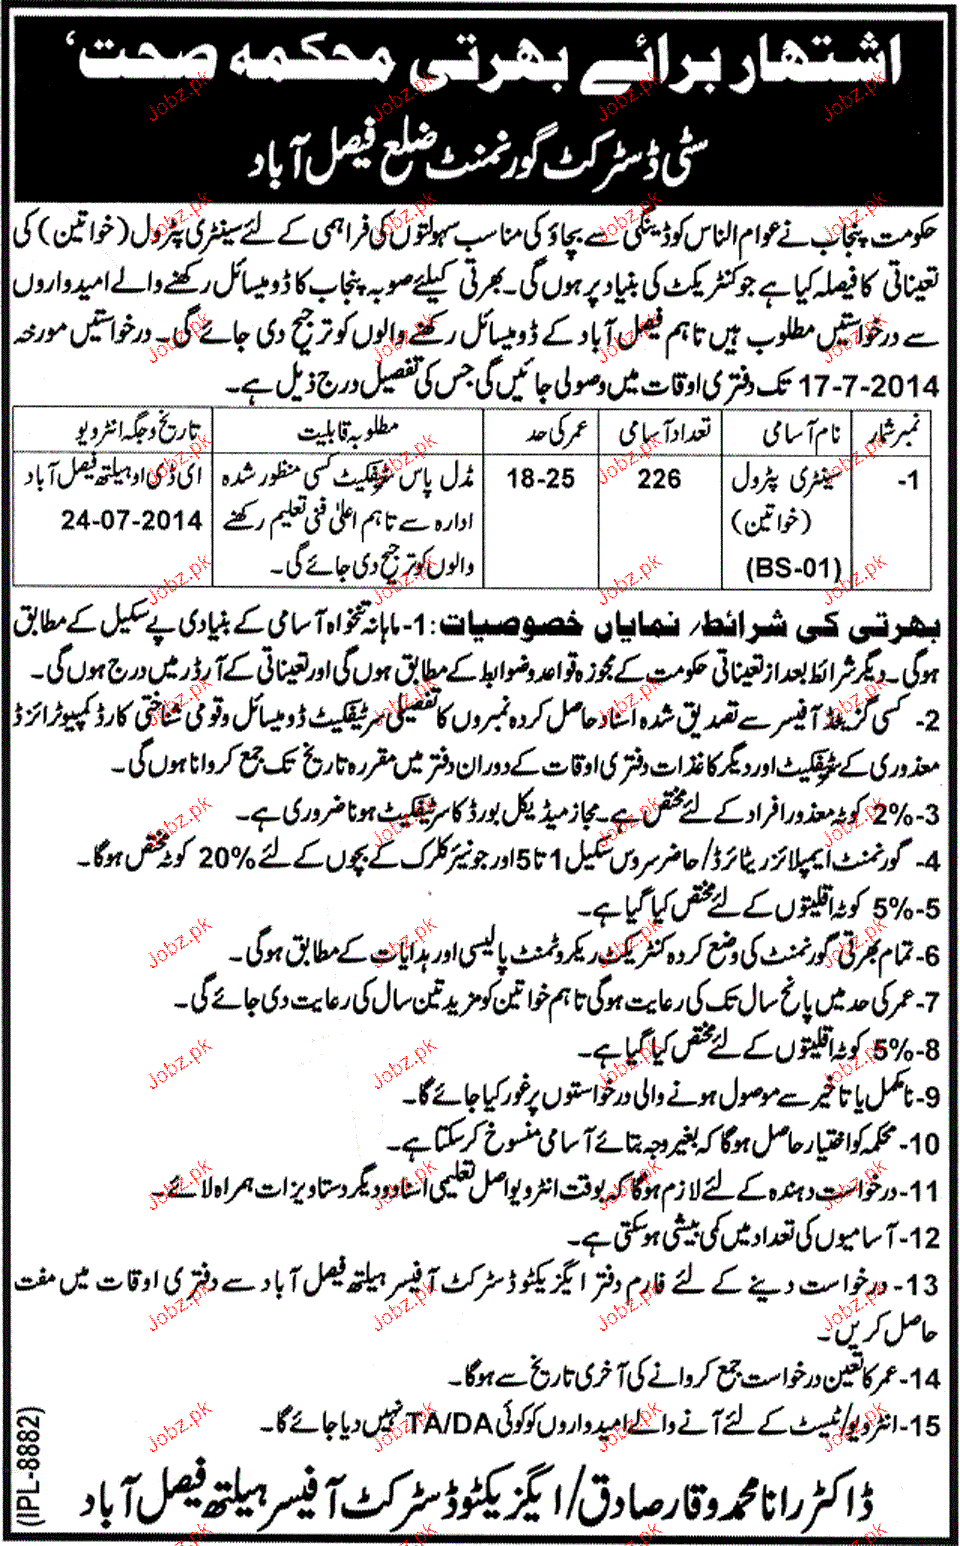 اشتہار برائے بھرتی محکمہ صحت،
سٹی ڈسٹرکٹ گورنمنٹ ضلع فیصل آباد
حکومت پنجاب نے عوام الناس کو ڈینگی سے بچاؤ کی مناسب سہولتوں کی فراہمی کے لئے سینٹری پٹرول (خواتین) کی
تعیناتی کا فیصلہ کیا ہے جو کنٹریکٹ کی بنیاد پر ہوں گی۔ بھرتی کیلئے صوبہ پنجاب کا ڈومیسائل رکھنے والے امیدواروں
سے درخواستیں مطلوب ہیں تاہم فیصل آباد کے ڈومیسائل رکھنے والوں کو ترجیح دی جائے گی۔ درخواستیں مورخہ
17-7-2014 تک دفتری اوقات میں وصولی جائیں گی جس کی تفصیل درج ذیل ہے۔
نمبر شمار | نام آسامی | تعداد آسامی | عمر کی حد | مطلوبہ قابلیت | تاریخ و جگہ انٹرویو
1- | سینٹری پٹرول | 226 | 18-25 | مڈل پاس سرٹیفکیٹ کسی منظور شدہ | ای ڈی او ہیلتھ فیصل آباد
(خواتین) | ادارہ سے تاہم اعلیٰ فنی تعلیم رکھنے | 24-07-2014
(BS-01) | والوں کو ترجیح دی جائے گی۔
بھرتی کی شرائط / نمایاں خصوصیات: 1- ماہانہ تنخواہ آسامی کے بنیادی پے سکیل کے مطابق
ہوگی۔ دیگر شرائط بعد از تعیناتی حکومت کے مجوزہ قواعد و ضوابط کے مطابق ہوں گی اور تعیناتی کے آرڈر میں درج ہوں گی۔
2- کسی گزیٹڈ آفیسر سے تصدیق شدہ اسناد حاصل کردہ نمبروں کا تفصیلی سرٹیفکیٹ ڈومیسائل و قومی شناختی کارڈ کمپیوٹرائزڈ
معذوری کے سرٹیفکیٹ اور دیگر کاغذات دفتری اوقات کے دوران دفتر میں مقررہ تاریخ تک جمع کروانا ہوں گی۔
3- 2% کوٹہ معذور افراد کے لئے مختص ہے۔ مجاز میڈیکل بورڈ کا سرٹیفکیٹ ہونا ضروری ہے۔
4- گورنمنٹ ایمپلائز ریٹائرڈ/ حاضر سروس سکیل 1 تا 5 اور جونیئر کلرک کے بچوں کے لئے 20% کوٹہ مختص ہوگا۔
5- 5% کوٹہ اقلیتوں کے لئے مختص کیا گیا ہے۔
6- تمام بھرتی گورنمنٹ کی وضع کردہ کنٹریکٹ ریکروٹمنٹ پالیسی اور ہدایات کے مطابق ہوگی۔
7- عمر کی حد میں پانچ سال تک کی رعایت ہوگی تاہم خواتین کو مزید تین سال کی رعایت دی جائے گی۔
8- 5% کوٹہ اقلیتوں کے لئے مختص کیا گیا ہے۔
9- نامکمل یا تاخیر سے موصول ہونے والی درخواستوں پر غور کیا جائے گا۔
10- محکمہ کو اختیار حاصل ہوگا کہ بغیر وجہ بتائے آسامی منسوخ کر سکتا ہے۔
11- درخواست دہندہ کے لئے لازم ہوگا کہ بوقت انٹرویو اصل تعلیمی اسناد و دیگر دستاویزات ہمراہ لائے۔
12- آسامیوں کی تعداد میں کمی بیشی ہو سکتی ہے۔
13- درخواست دینے کے لئے فارم دفتر ایگزیکٹو ڈسٹرکٹ آفیسر ہیلتھ فیصل آباد سے دفتری اوقات میں مفت
حاصل کریں۔
14- عمر کا تعین درخواست جمع کروانے کی آخری تاریخ سے ہوگا۔
15- انٹرویو/ ٹیسٹ کے لئے آنے والے امیدواروں کو کوئی TA/DA نہیں دیا جائے گا۔
ڈاکٹر رانا محمد وقار صادق/ ایگزیکٹو ڈسٹرکٹ آفیسر ہیلتھ فیصل آباد
(IPL-8882)
Jobz.pk